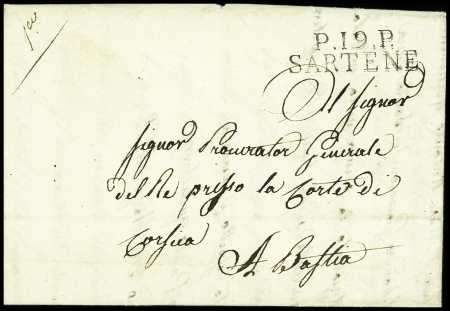 P.19.P.
SARTENE
Al Signor
Signor Procurator Generale
del Re presso la Corte di
Corsica
A Bastia